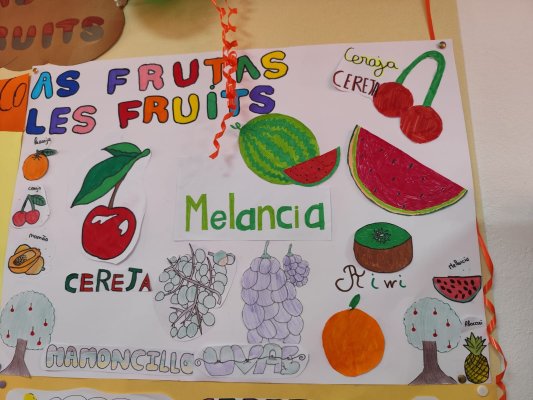 FRUITS
AS FRUTAS
LES FRUITS
Cereja
CEREJA
laranja
cereja
mamão
Melancia
CEREJA
Kiwi
Melancia
Abacaxi
MAMONCILLO
UVAS